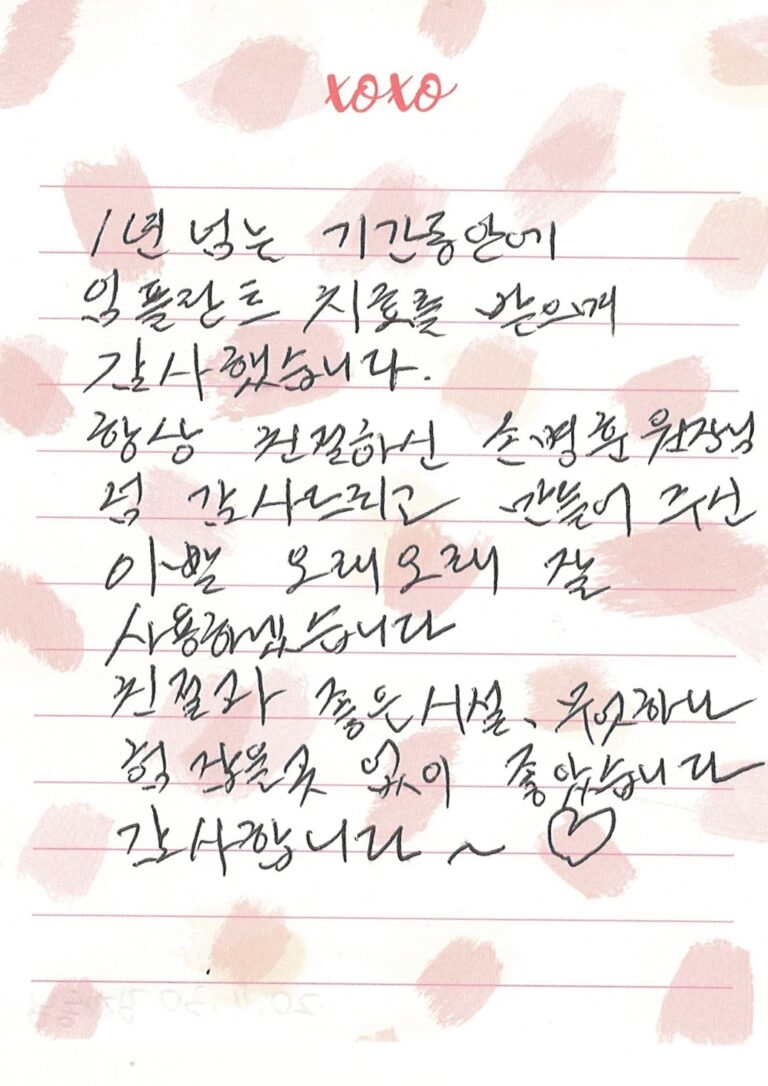 xoxo
1년 넘는 기간동안에
임플란트 치료를 받으며
감사했습니다.
항상 친절하신 손병훈 원장님
넘 감사드리고 만들어 주신
이빨 오래오래 잘
사용하겠습니다
친절과 좋은시설, 무엇하나
흠 잡을곳 없이 좋았습니다
감사합니다 ~ ♡